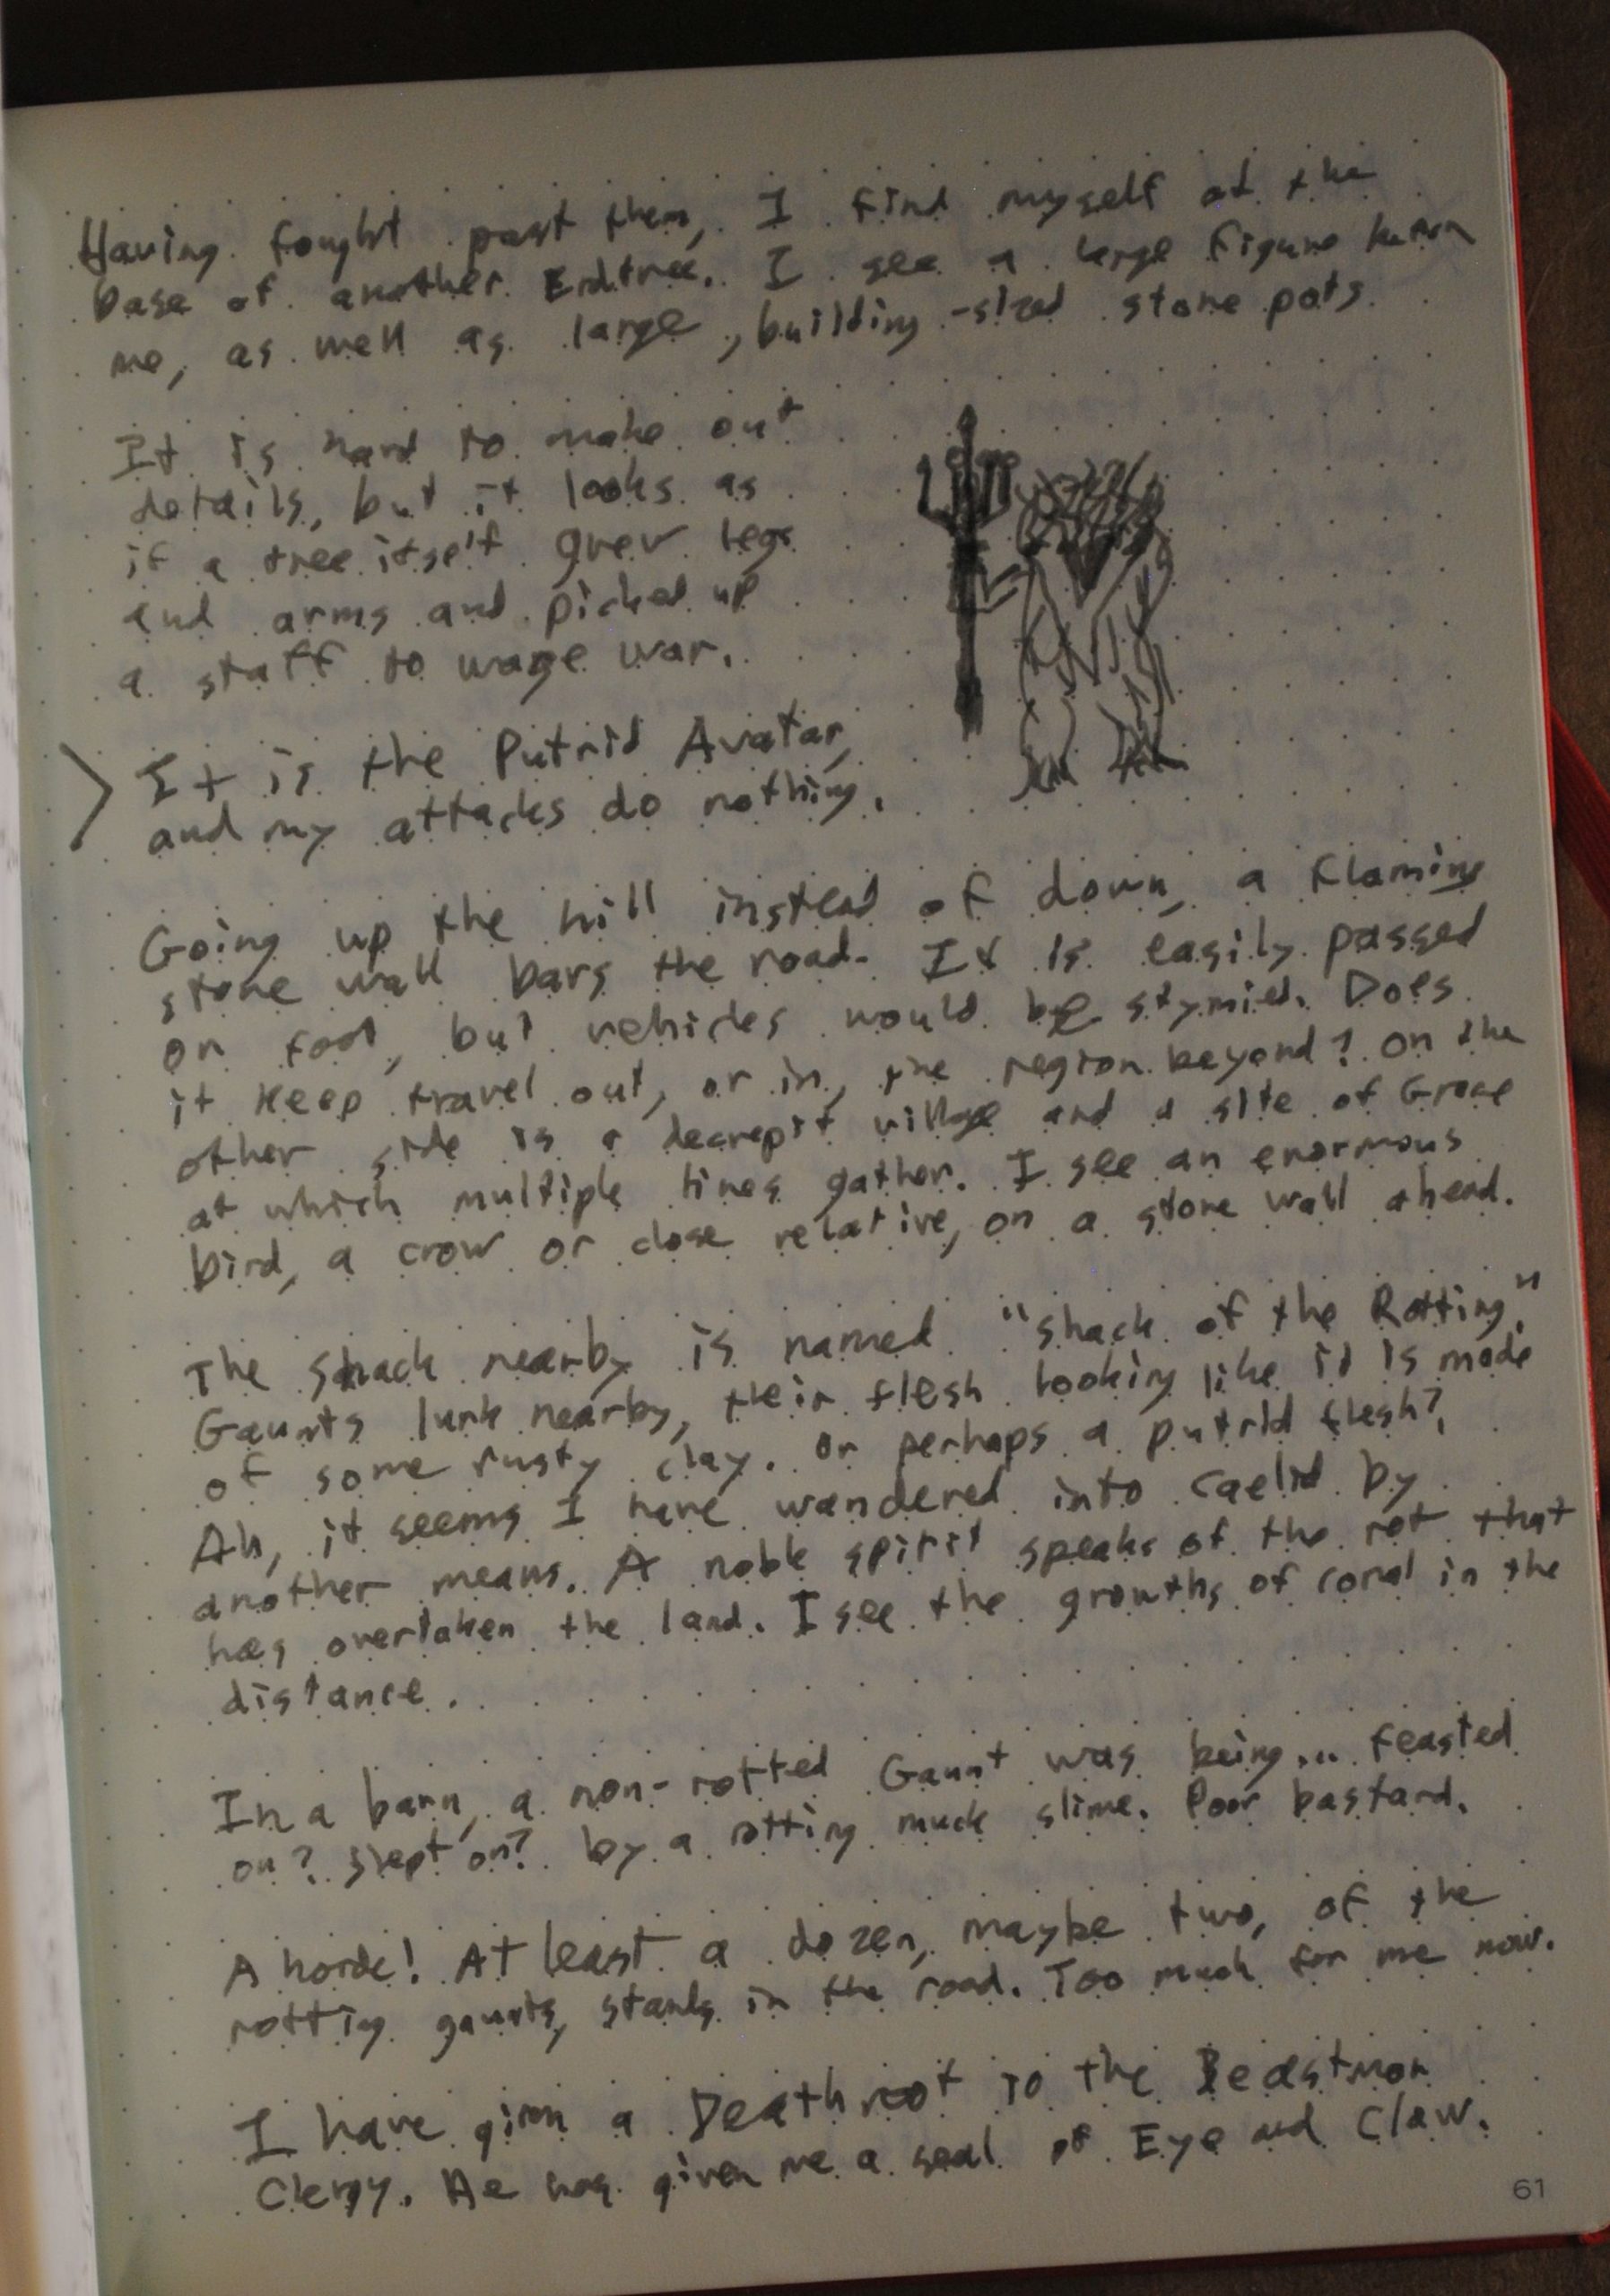 Having fought past them, I find myself at the
base of another Erdtree. I see a large figure
me, as well as large, building-sized stone pots.
It is hard to make out
details, but it looks as
if a tree itself grew legs
and arms and picked up
a staff to wage war.
> It is the Putrid Avatar,
and my attacks do nothing.
Going up the hill instead of down, a flaming
stone wall bars the road. It is easily passed
on foot, but vehicles would be stymied. Does
it keep travel out, or in, the region beyond? On the
other side is a decrepit village and a site of Grace
at which multiple lines gather. I see an enormous
bird, a crow or close relative, on a stone wall ahead.
The shack nearby is named "Shack of the Rotting."
Gaunts lurk nearby, their flesh looking like it is made
of some rusty clay. Or perhaps a putrid flesh?
Ah, it seems I have wandered into Caelid by
another means. A noble spirit speaks of the rot that
has overtaken the land. I see the growths of coral in the
distance.
In a barn, a non-rotted Gaunt was being... feasted
on? Slept on? by a rotting muck slime. Poor bastard.
A horde! At least a dozen, maybe two, of the
rotting gaunts, stands in the road. Too much for me now.
I have given a Deathroot to the Beastman
Clergy. He has given me a seal of Eye and Claw.
61